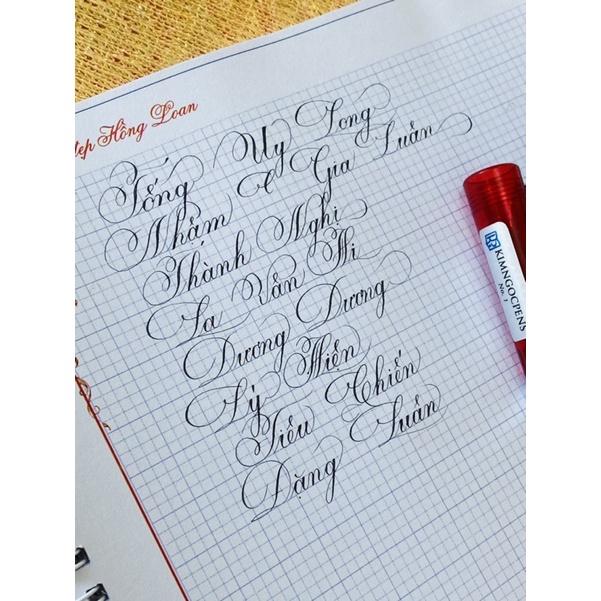 đẹp Hồng Loan
Tống Uy Long
Nhậm Gia Luân
Thành Nghị
La Vân Hi
Dương Dương
Lý Hiện
Tiêu Chiến
Đặng Luân
KIMNGOCPENS
No. 1